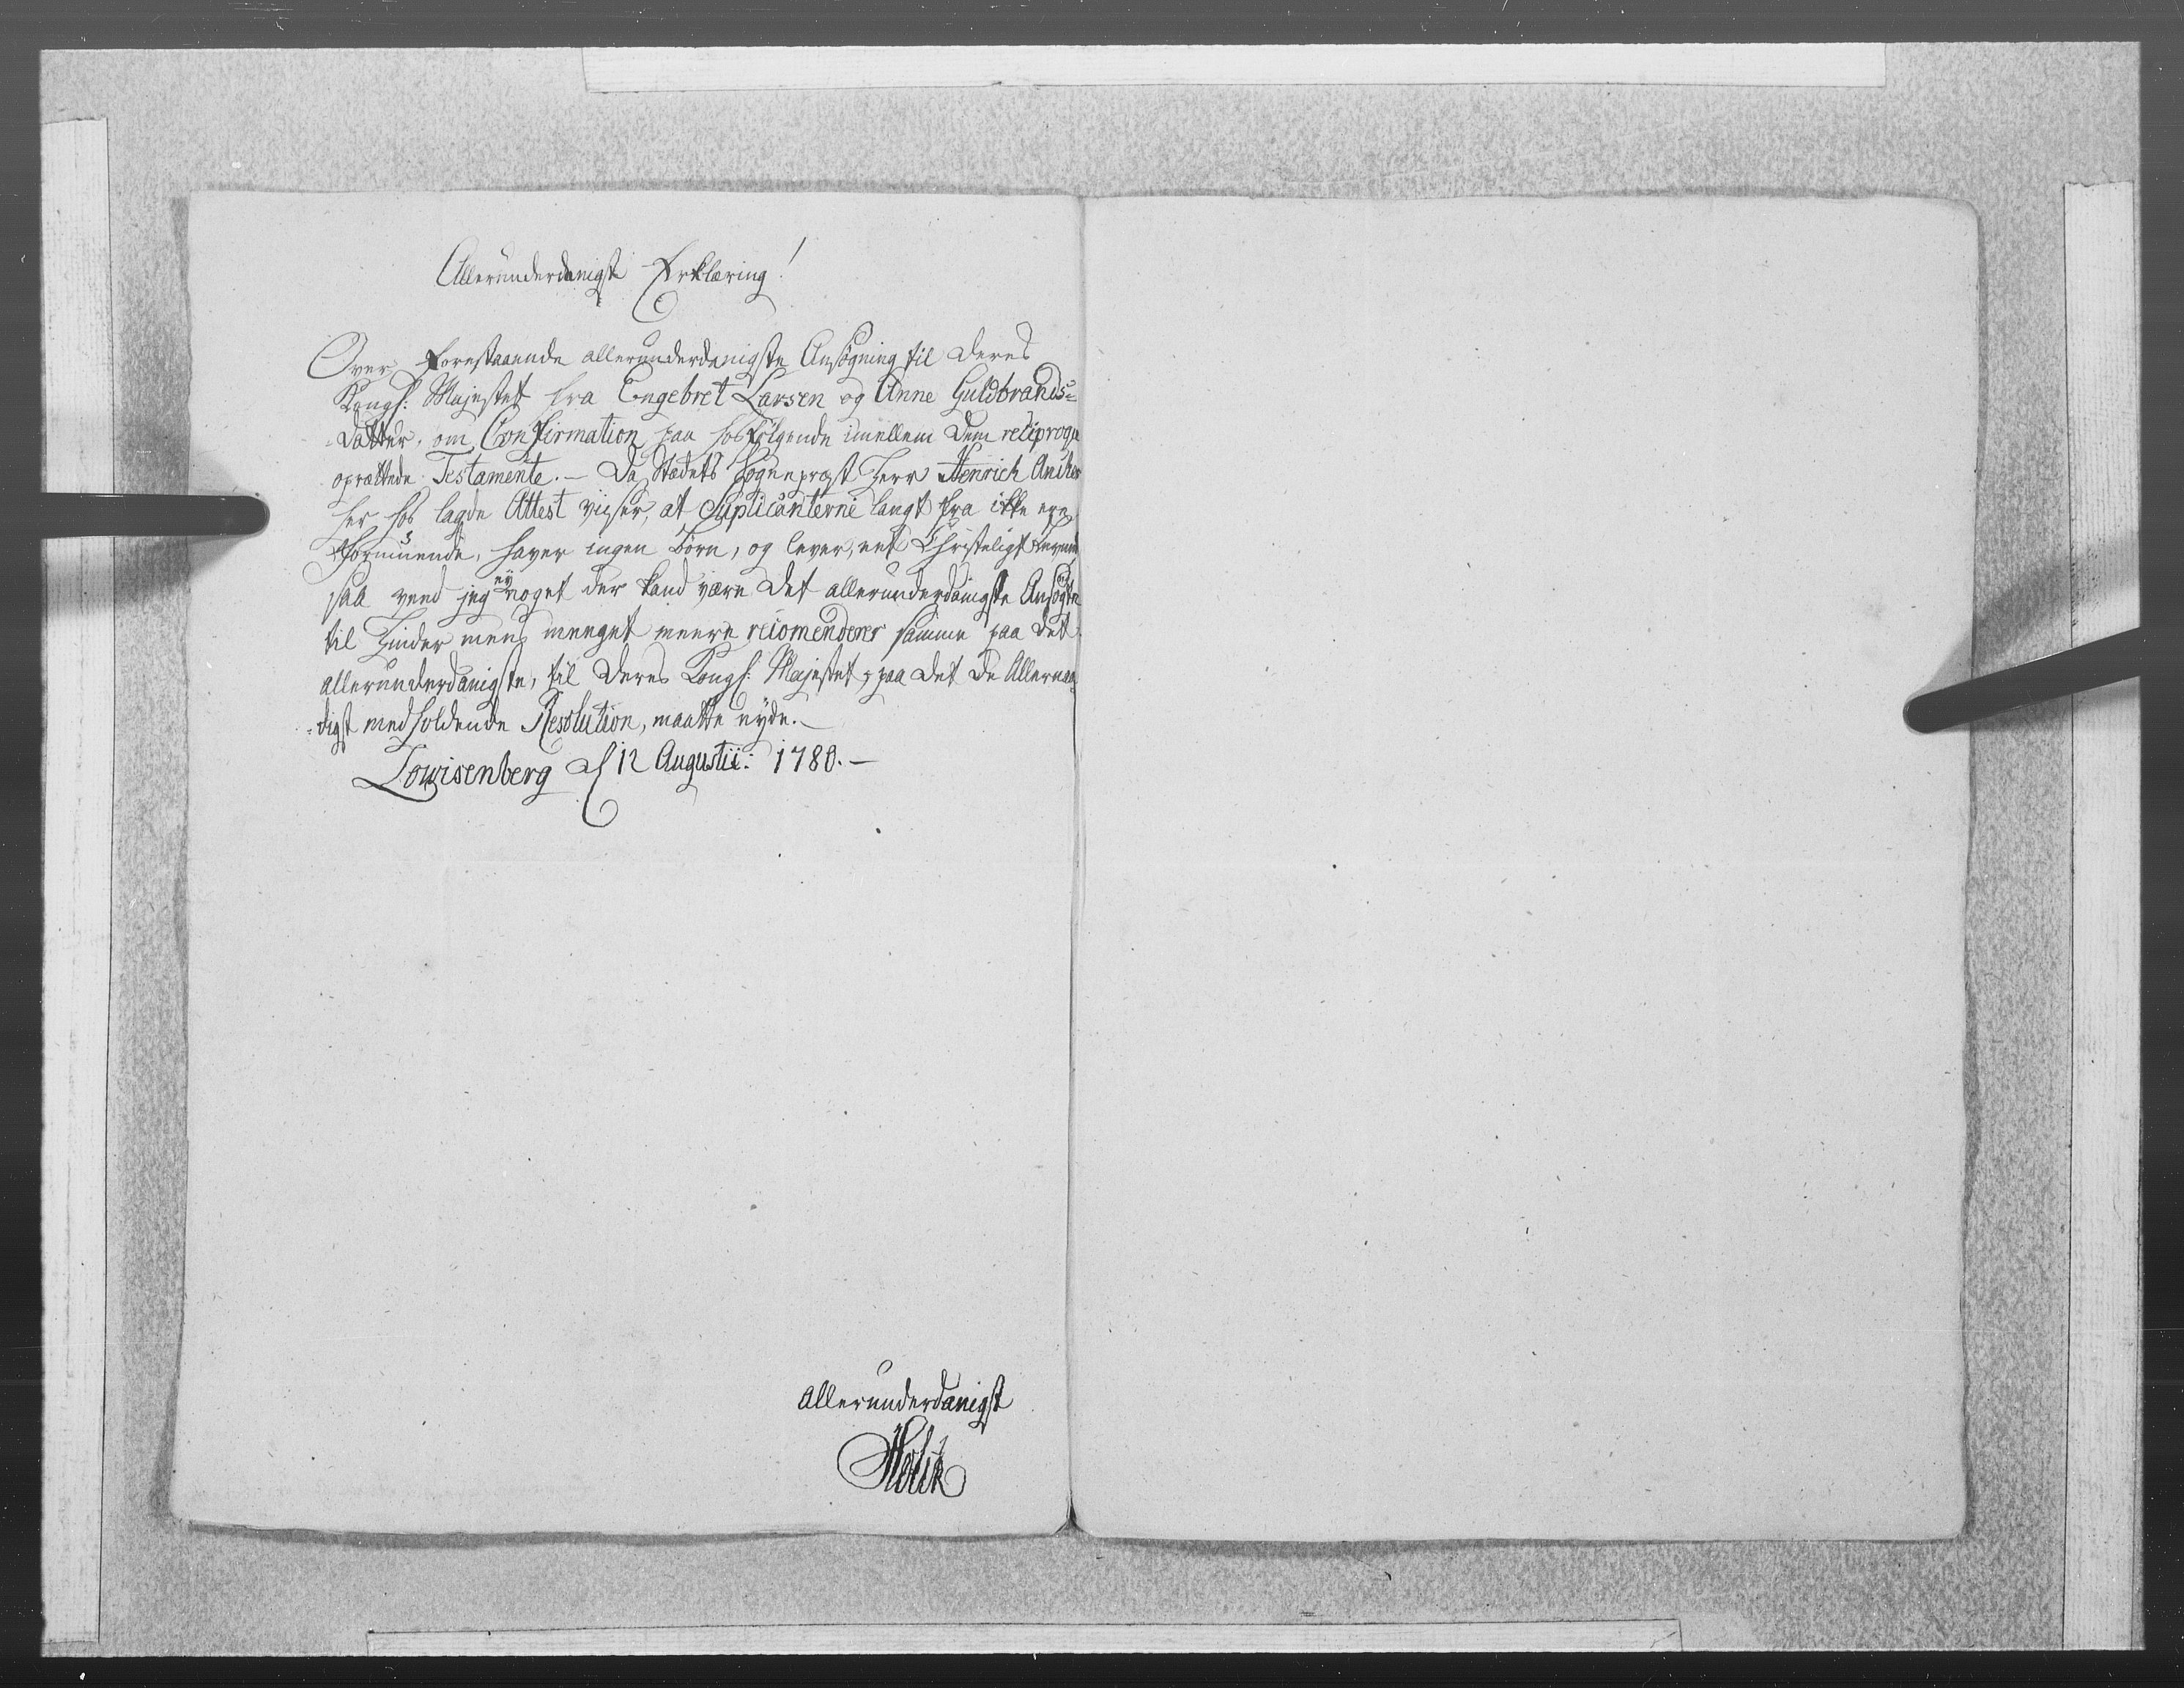 Allerunderdanigste Erklæring!
Over forestaaende allerunderdanigste Ansøgning til Deres
Kongl: Majestet fra Engebret Larsen og Anne Guldbrands=
=Datter, om Confirmation paa hosfølgende imellem dem reciproqe
oprættede Testamente. - Da Stædets Sogneprest Herr Henrich Ancher
her hos lagde Attest viiser, at Suplicanterne langt fra ikke ere
formuende, haver ingen Børn, og lever, eet Christeligt Levnet
saa veed jeg ey noget der kand være det allerunderdanigste Ansøgte
til Hinder men meeget meere recomenderer samme paa det
allerunderdanigste, til Deres Kongl: Majestet, paa det de Allernaa=
=digst medholdende Resolution, maatte nyde. -
Lowisenberg d 12 Augustii: 1780. -
allerunderdanigst